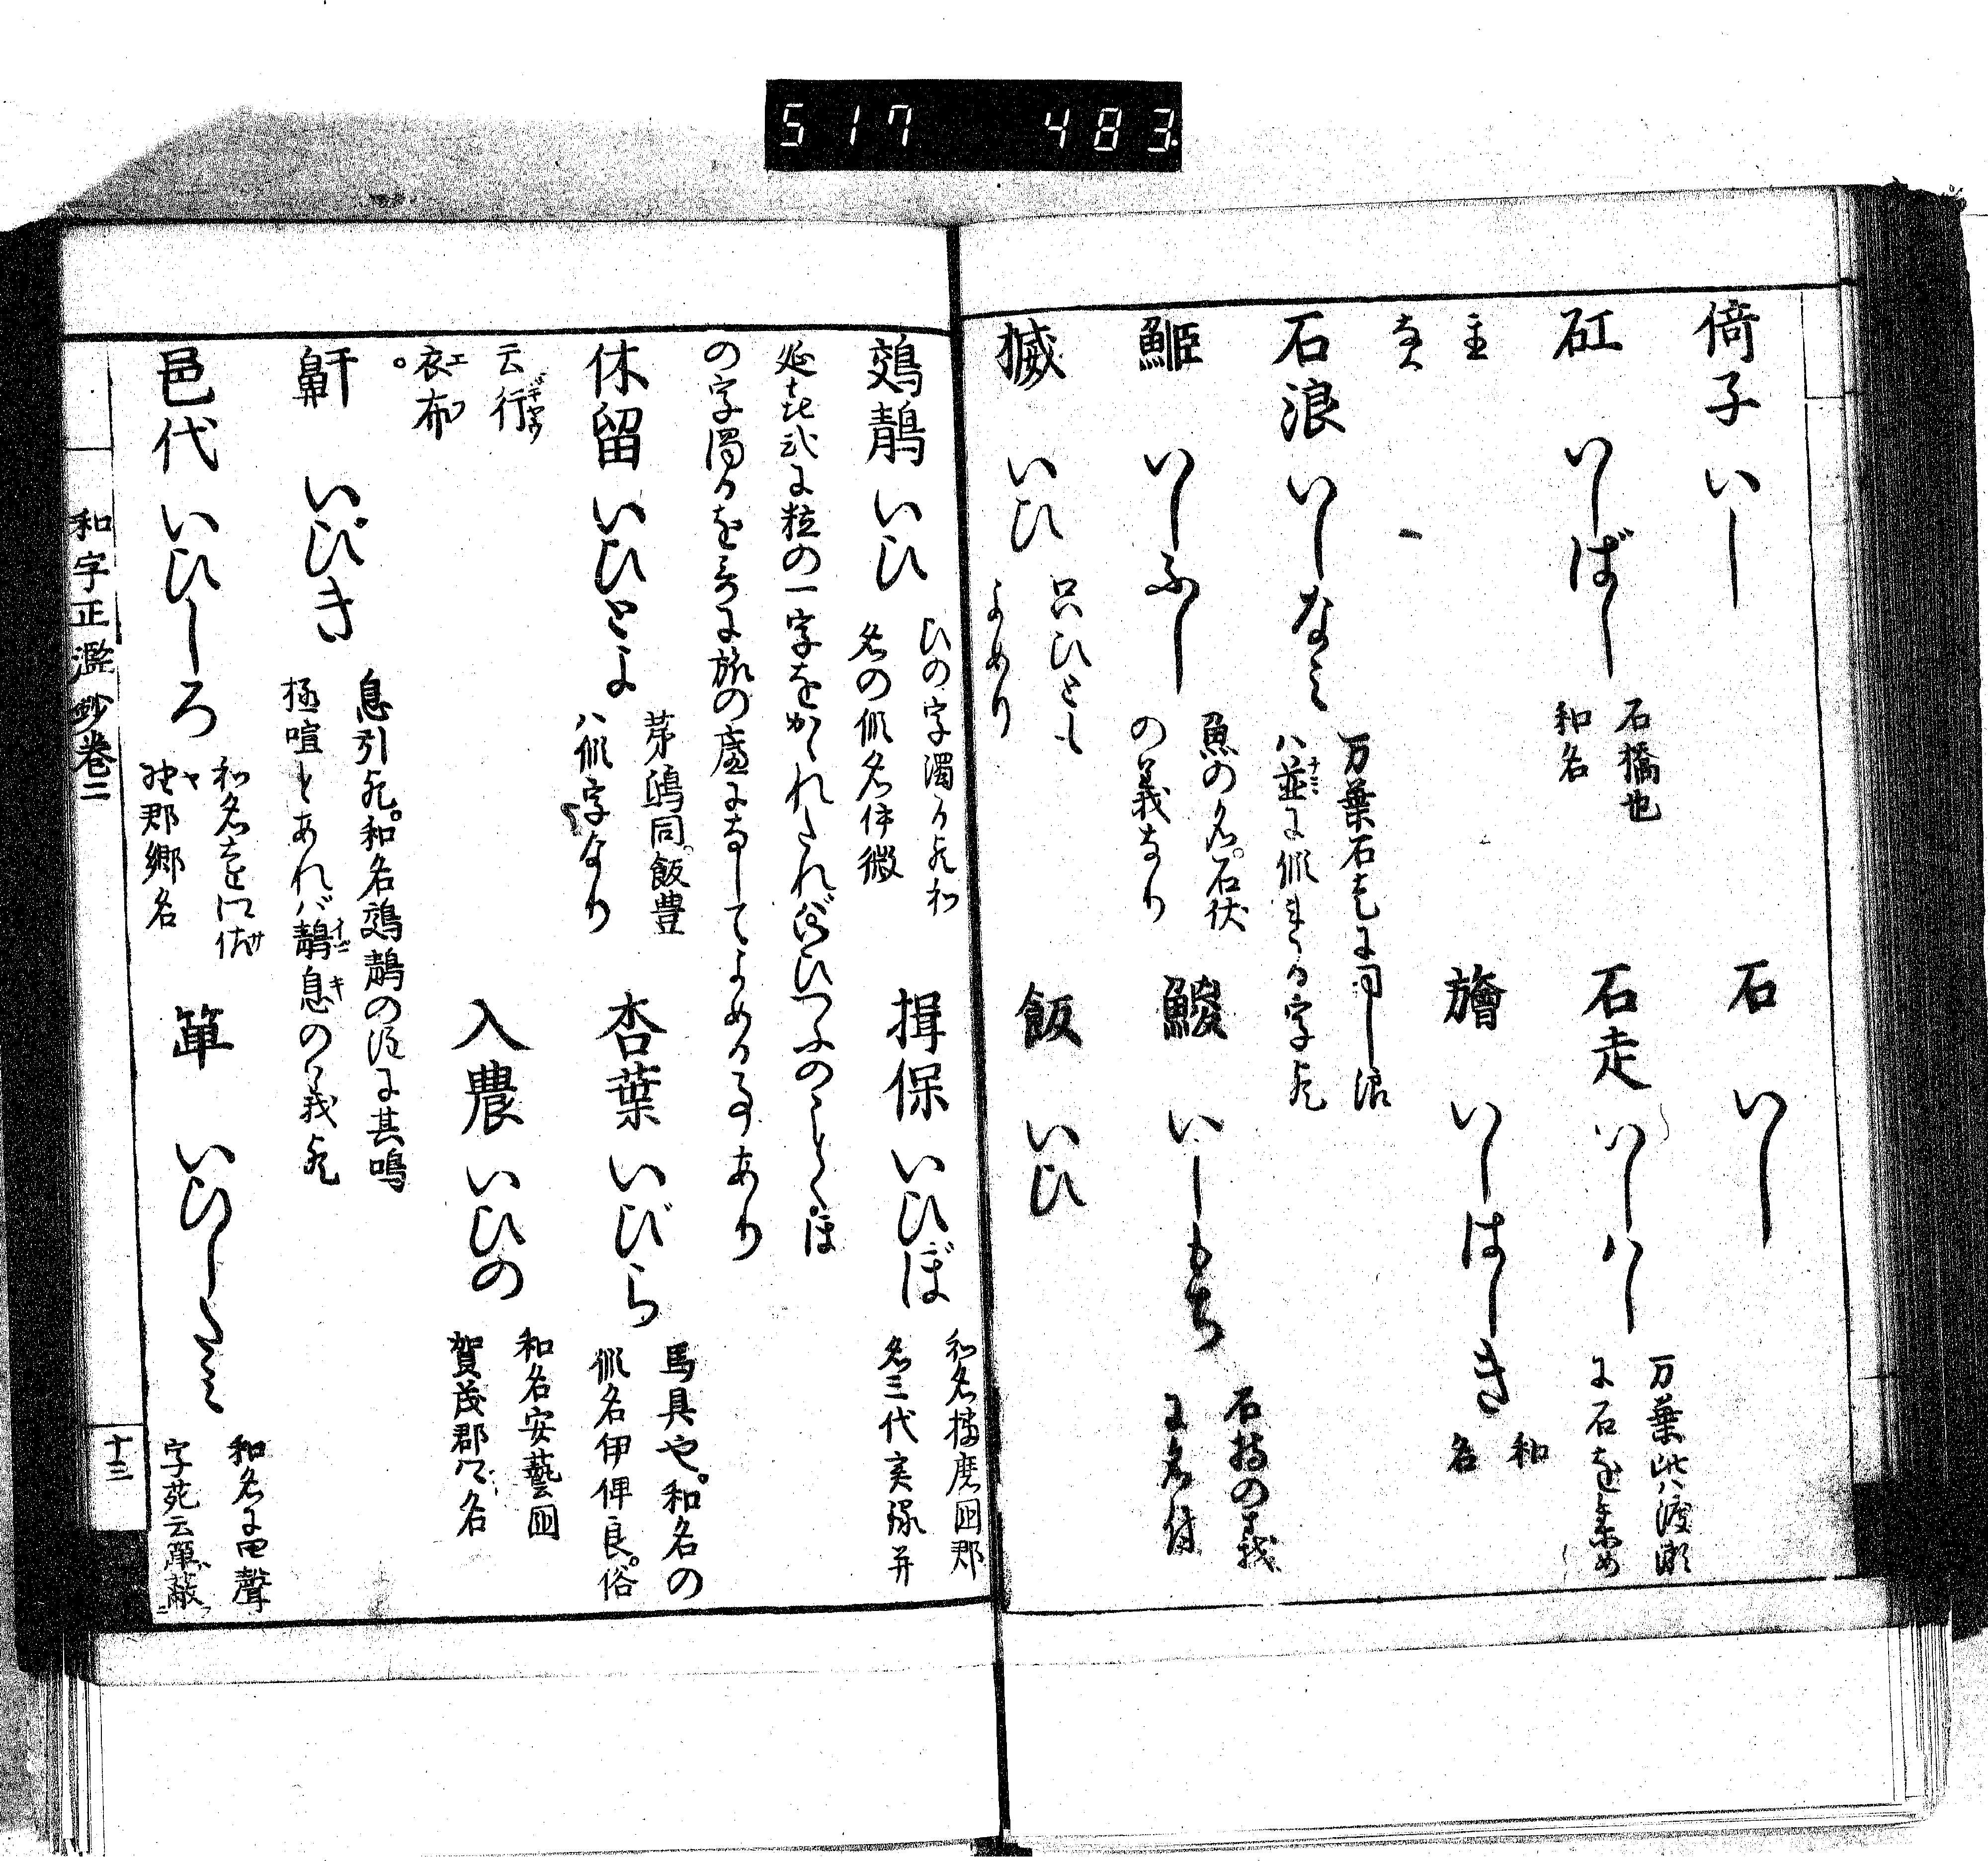 517 483
倚子 いし
石 いし
矼 いしばし 石橋也
和名
石走 いしハし 万葉此ハ渡瀬
に石を
旝 いしはじき 和
名
石浪 いしなみ 万葉石走に同し浪
ハ並に假まくる字也
䱌 いしふし 魚の名。石伏
の義なり
鯼 いしもち 石持の義
に名付
楲 いひ 只ひとも
よめり
飯 いひ
鵼鶄 いひ ひの字濁る也和
名の假名伊微
揖保 いひぼ 和名播磨国郡
名三代実録并
延喜式に粒の一字をかゝれたれバいひつふのことく。ほ
の字濁るを哥に旅の庵になしてよめる事あり
休留 いひとよ 茅鴟同。飯豊
ハ假字なり
杏葉 いびら 馬具や。和名の
假名伊俾良。俗
云行
衣布
入農 いひの 和名安藝国
賀茂郡郷名
鼾 いびき 息引也。和名鵼鶄の注に其鳴
極喧とあれバ鶄息の義也
邑代 いひしろ 和名遠江佐
野郡郷名
箄 いひしたみ 和名に四聲
字苑云箄蔽
和字正濫鈔巻二
十三